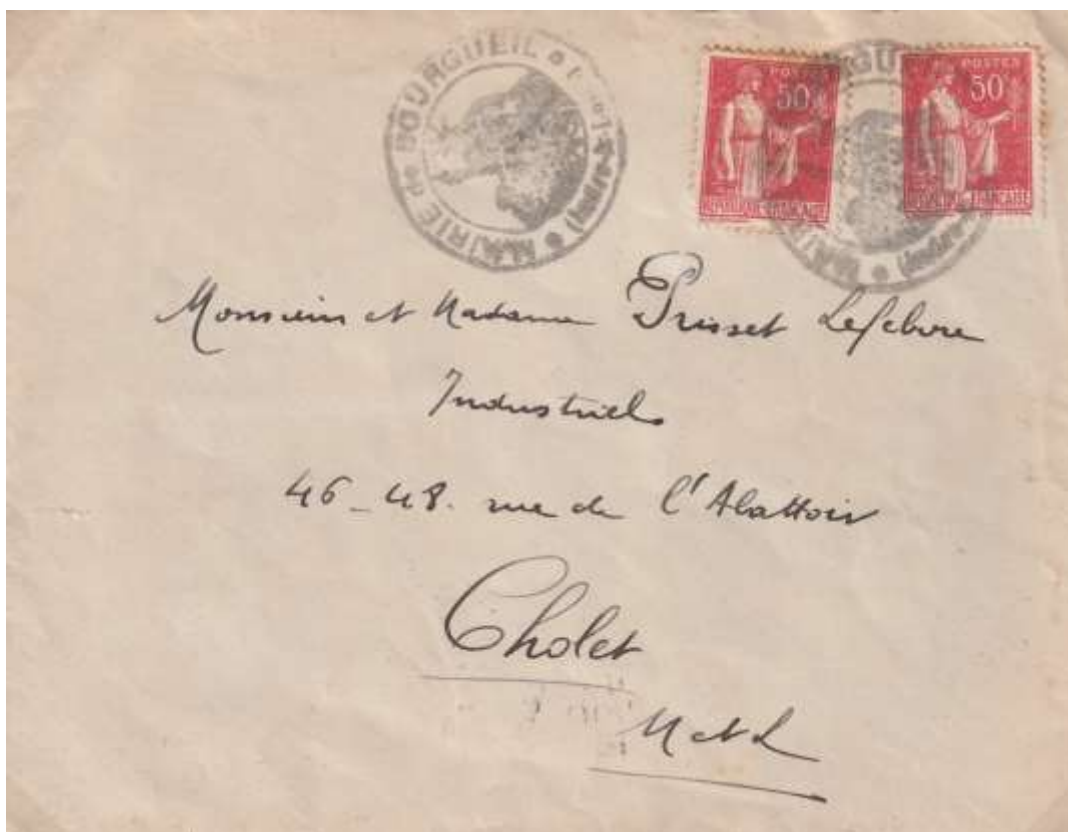 MAIRIE de BOURGUEIL (Indre-&-Loire)
POSTES
50
RÉPUBLIQUE FRANÇAISE
POSTES
50
RÉPUBLIQUE FRANÇAISE
MAIRIE BOURGUEIL (Indre-
Monsieur et Madame Prisset Lefebvre
Industriels
46-48. rue de l'Abattoir
Cholet
M et L